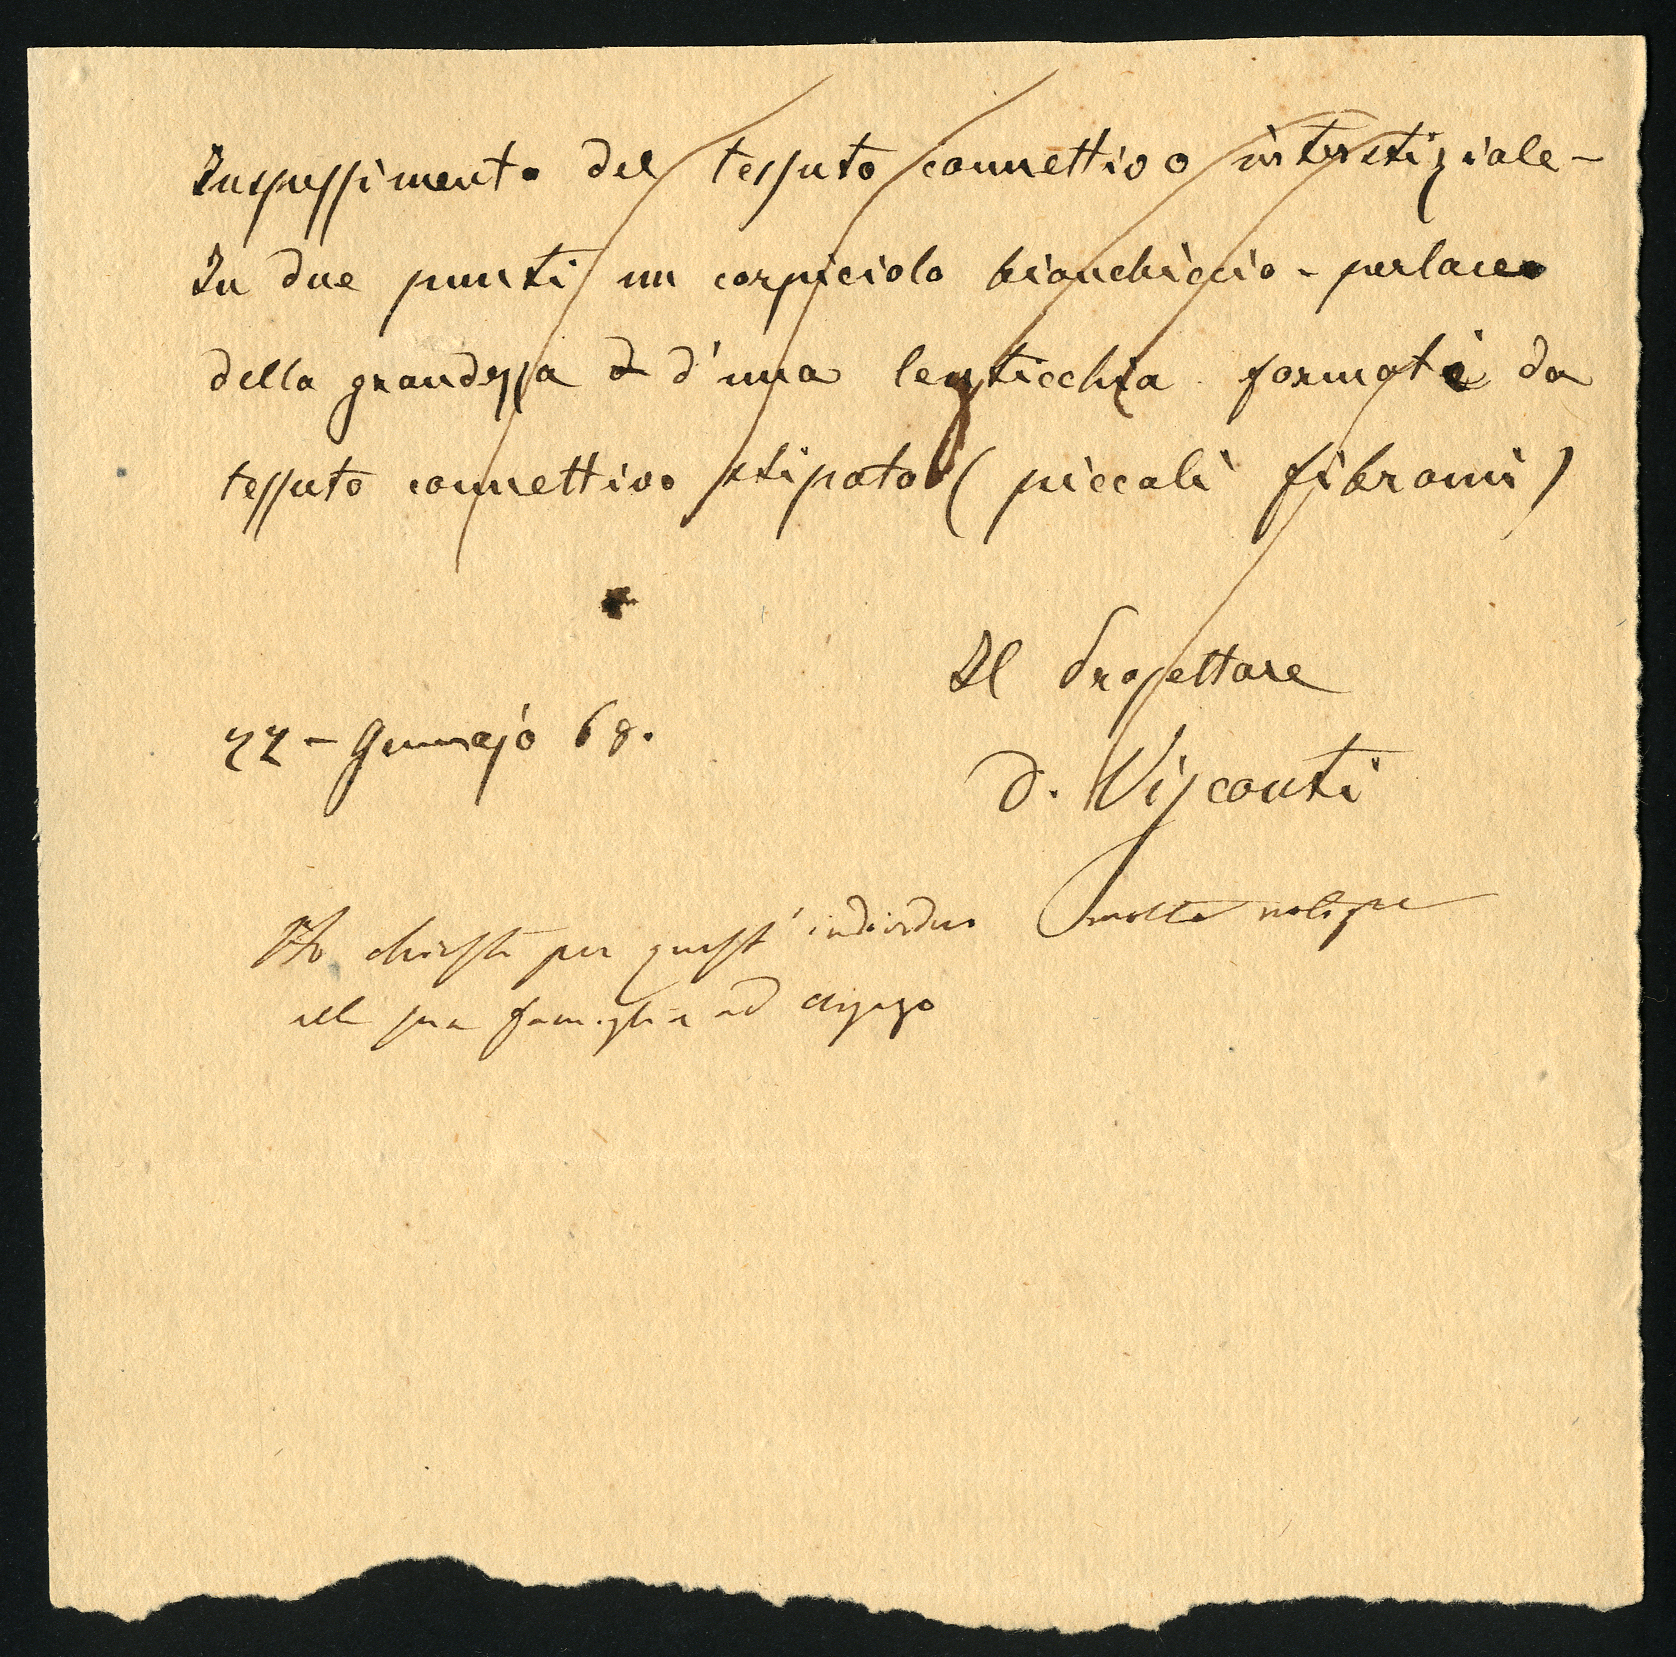 Inspessimento del tessuto connettivo interstiziale -
In due punti un corpicciolo bianchiccio - perlaceo
della grandezza d'una lenticchia formati da
tessuto connettivo stipato (piccoli fibromi)
Il Prosettore
22 - Gennajo 68.
D. Visconti
Ho chiesto per quest' individuo molte notizie
alla sua famiglia ad